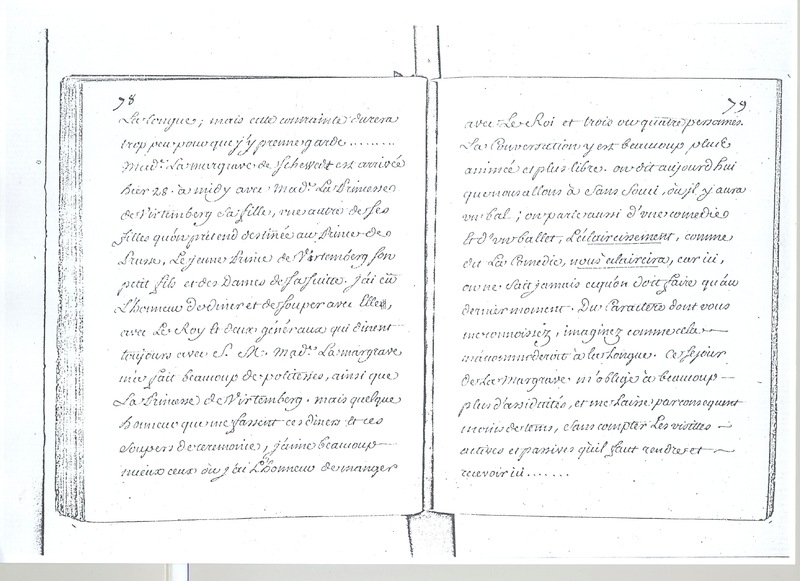 78
La longue; mais cette contrainte durera
trop peu pour que j'y prenne garde.........
Mad.e La margrave de Schewedt est arrivée
hier 28. a midy avec Mad.e La Princesse
de Virtemberg sa fille, une autre de ses
filles qu'on prétend destinée au Prince de
Prusse, Le jeune Prince de Virtemberg son
petit fils et des Dames de sa suite. j'ai eü
L'honneur de diner et de souper avec Elles,
avec Le Roy et deux généraux qui dinent
toujours avec S. M. Mad.e La margrave
m'a fait beaucoup de politesses, ainsi que
La Princesse de Virtemberg. mais quelque
honneur que me fassent ces diners et ces
soupers de ceremonie, j'aime beaucoup
mieux ceux où j'ai L'honneur de manger
79
avec Le Roi et trois ou quattre personnes.
La Conversation y est beaucoup plus
animée et plus libre. on dit aujourd'hui
que nous allons à Sans Souci, où il y aura
un bal; on parle aussi d'une comedie
et d'un ballet, L'éclaircissement, comme
dit La Comédie, nous éclaircira, car ici,
on ne sait jamais ce qu'on doit faire qu'au
dernier moment. Du Caractere dont vous
me connoissez, imaginez comme cela
m'accommoderoit à la Longue. Ce séjour
de La Margrave m'oblige à beaucoup
plus d'assiduités, et me Laisse par consequent
moins de tems, sans compter Les visittes
actives et passives qu'il faut rendre et
recevoir ici.......